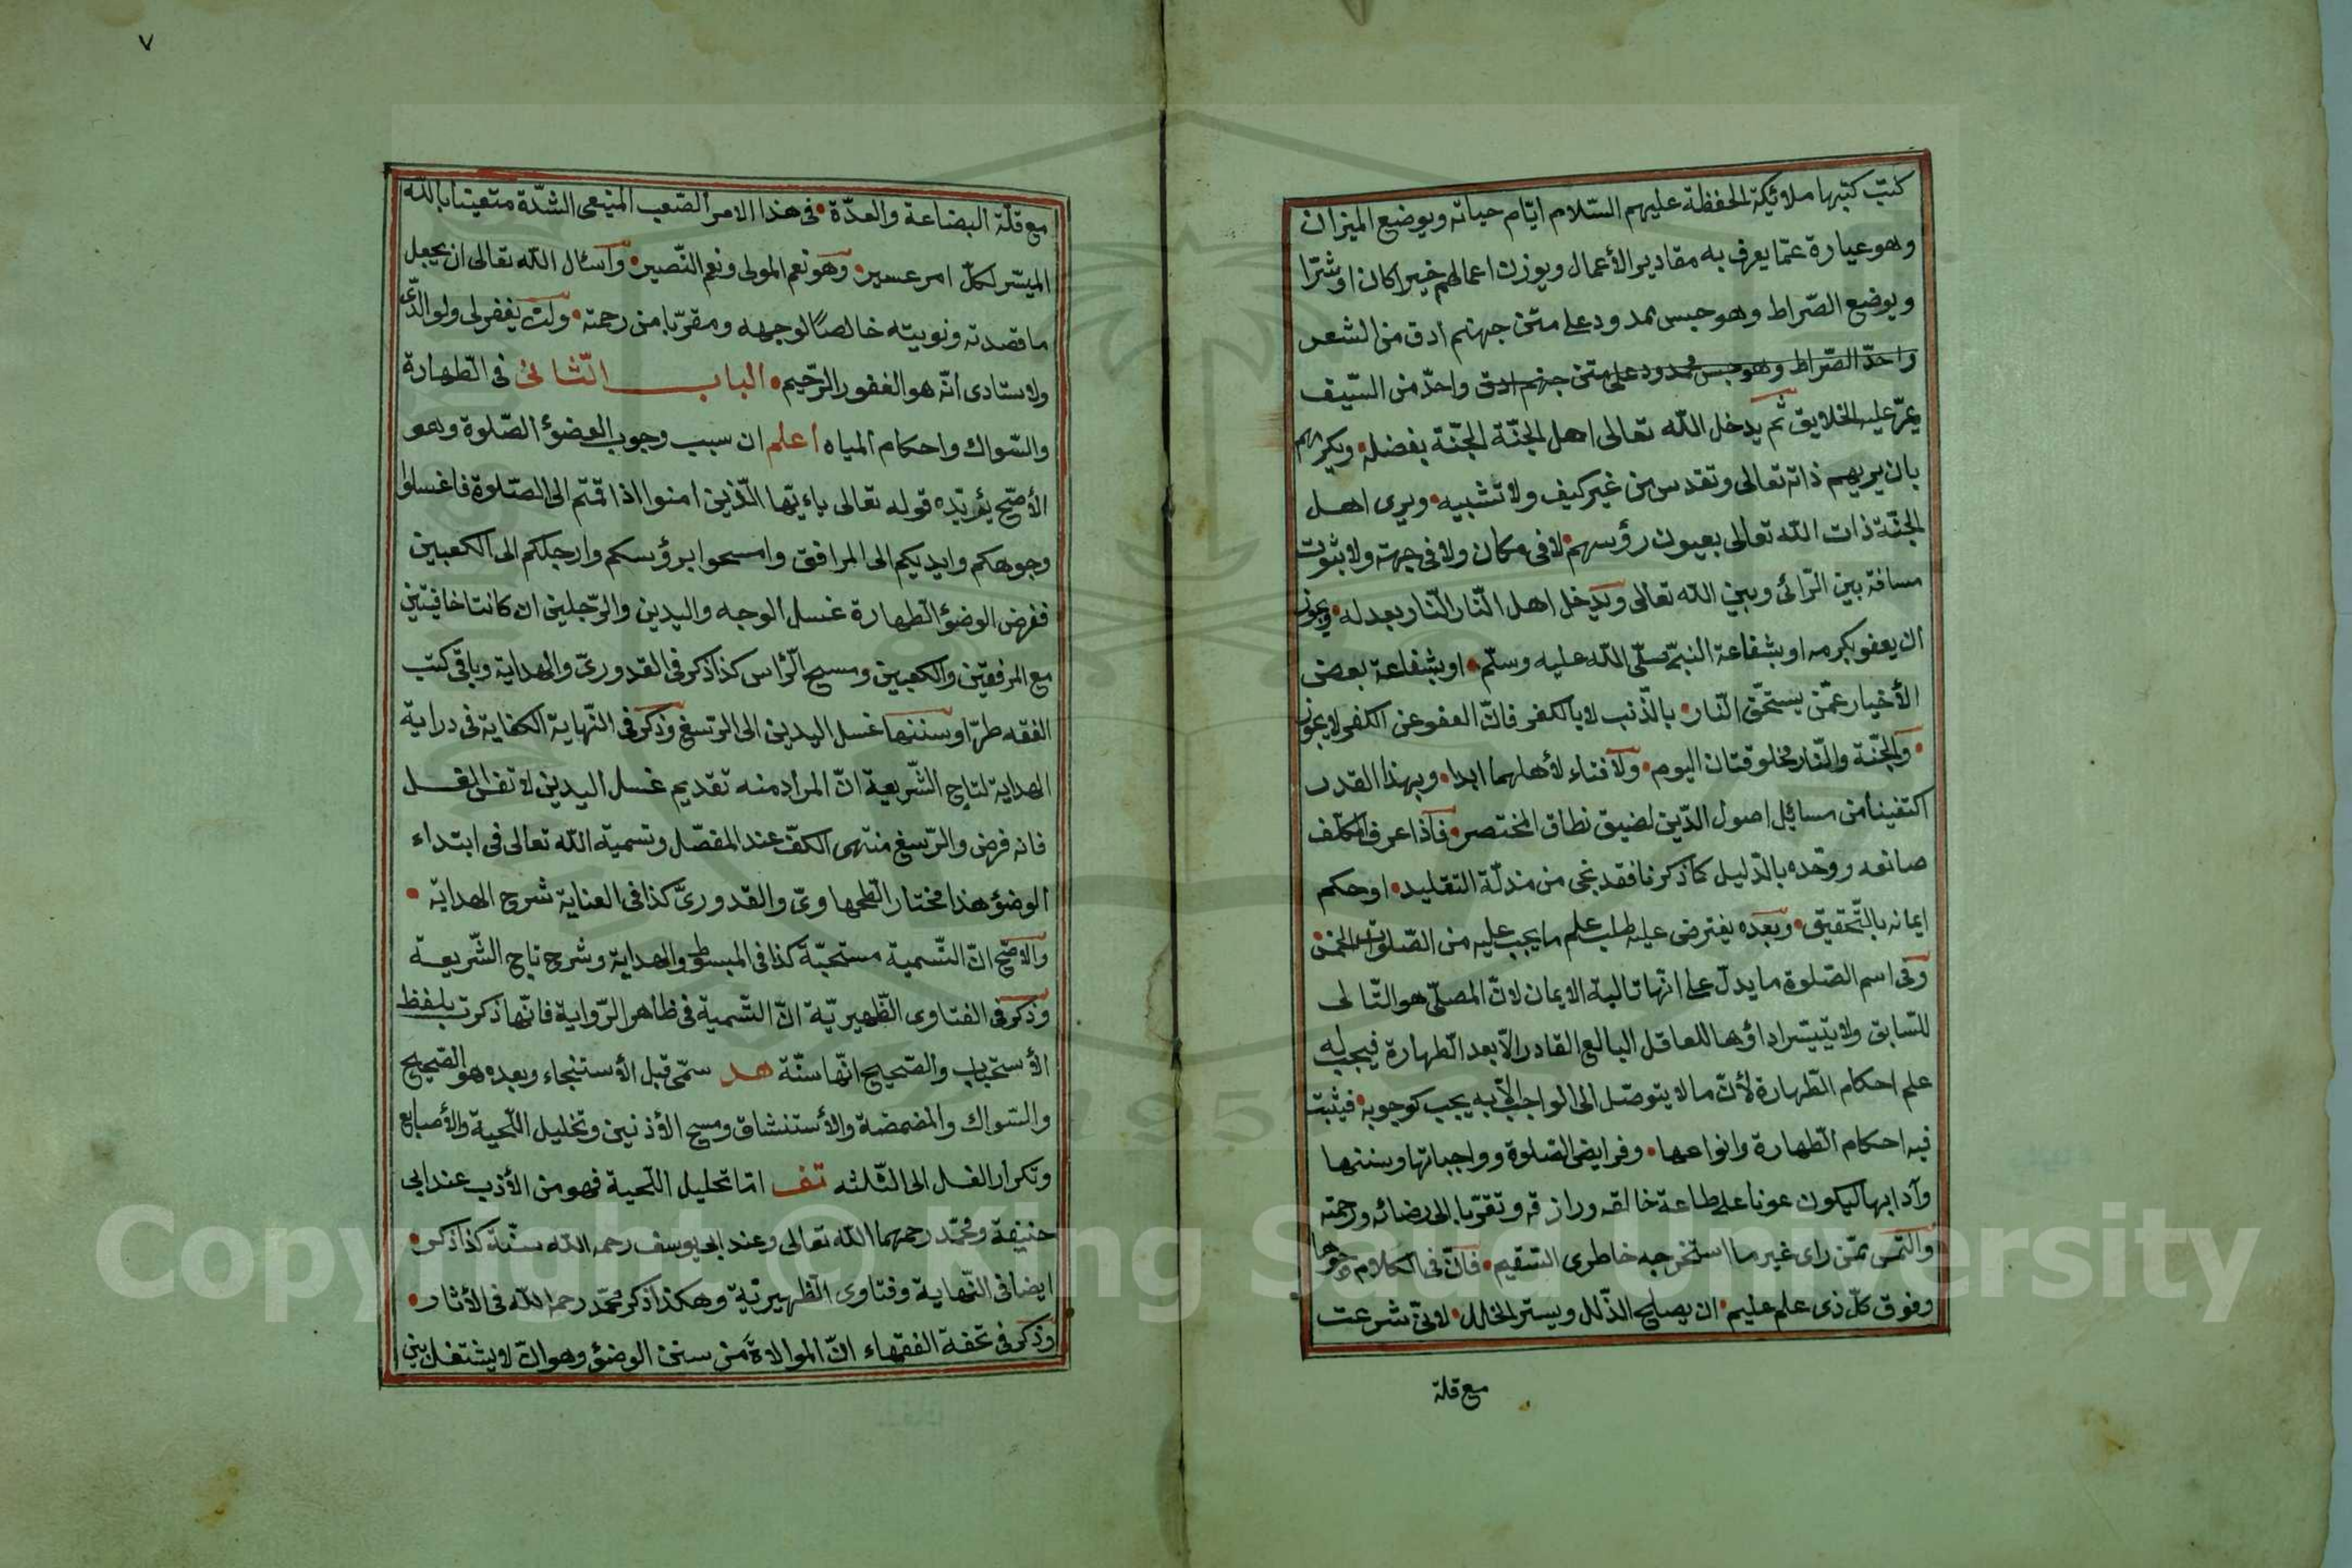 كتب كتبها ملائكة الحفظة عليهم السّلام ايّام حياته ويوضع الميزان
وهو عبارة عمّا يعرف به مقادير الأعمال ويوزن اعمالهم خيرا كان او شرّا
ويوضع الصّراط وهو جسر ممدود على متن جهنم ادق من الشعر
واحدّ الصّراط وهو جسر ممدود على متن جهنم ادق واحدّ من السّيف
يمرّ عليه الخلايق ثم يدخل الله تعالى اهل الجنّة الجنّة بفضله ويكرمهم
بان يريهم ذاته تعالى وتقدس من غير كيف ولا تشبيه ويرى اهل
الجنّة ذات الله تعالى بعيون رؤسهم لا في مكان ولا في جهة ولا بثبوت
مسافة بين الرّائى وبين الله تعالى ويدخل اهل النّار النّار بعدله ويجوز
ان يعفو بكرمه او بشفاعة النبيّ صلّى الله عليه وسلّم او بشفاعة بعض
الأخيار عمّن يستحقّ النّار بالذّنب لا بالكفر فانّ العفو عن الكفر لا يجوز
والجنّة والنّار مخلوقتان اليوم ولا فناء لأهلهما ابدا وبهذا القدر
اكتفينا من مسائل اصول الدّين لضيق نطاق المختصر فاذا عرف المكلّف
صانعه ووحّده بالدّليل كما ذكرنا فقد نجى من مذلّة التقليد او حكم
ايمانه بالتّحقيق وبعده يفترض عليه طلب علم ما يجب عليه من الصّلوات الخمس
وفى اسم الصّلوة ما يدلّ على انّها تالية الايمان لانّ المصلّى هو التّالى
للسّابق ولا يتيسّر اداؤها للعاقل البالغ القادر الّا بعد الطّهارة فيجب له
علم احكام الطّهارة لأنّ ما لا يتوصّل الى الواجب الّا به يجب كوجوبه فيثبت
فيه احكام الطّهارة وانواعها وفرايض الصّلوة وواجباتها وسننها
وآدابها ليكون عونا على طاعة خالقه ورازقه وتقرّبا الى رضائه ورحمته
والتمس ممّن راى غير ما استخرجه خاطرى السّقيم فانّ فى الكلام وجوها
وفوق كلّ ذى علم عليم ان يصلح الذّلل ويستر الخلل لانّى شرعت
مع قلة
٧
مع قلّة البضاعة والعدّة فى هذا الامر الصّعب المنيعى الشدّة متعينا بالله
الميّسر لكلّ امر عسير وهو نعم المولى ونعم النّصير واسئال الله تعالى ان يجعل
ما قصدته ونويته خالصًا لوجهه ومقرّبا من رحمته وان يغفر لى ولوالدىّ
ولاستادى انّه هو الغفور الرّحيم الباب الثّانى فى الطّهارة
والسّواك واحكام المياه اعلم ان سبب وجوب الوضؤ الصّلوة وهو
الأصّح يؤيّده قوله تعالى ياءيّها الّذين امنوا اذا قمتم الى الصّلوة فاغسلوا
وجوهكم وايديكم الى المرافق وامسحوا برؤسكم وارجلكم الى الكعبين
ففرض الوضؤ الطّهارة غسل الوجه واليدين والرّجلين ان كانتا خافيتين
مع المرفقين والكعبين ومسح الرّاس كذا ذكر فى القدورىّ والهداية وباقى كتب
الفقه طرّا وسننها غسل اليدين الى الرّسغ وذكر فى النّهاية الكفاية فى دراية
الهداية لتاج الشّريعة انّ المراد منه تقديم غسل اليدين لا نفس الغسل
فانه فرض والرّسغ منتهى الكفّ عند المفصّل وتسمية الله تعالى فى ابتداء
الوضؤ هذا مختار الطّحاوىّ والقدورىّ كذا فى العناية شرح الهداية
والاصّح انّ التّسمية مستحبّة كذا فى المبسوط والهداية وشرح تاج الشّريعة
وذكر فى الفتاوى الظّهيريّة انّ التّسمية فى ظاهر الرّواية فانّها ذكرت بلفظ
الأستحباب والصّحيح انّها سنّة هد سمّى قبل الأستنجاء وبعده هو الصّحيح
والسّواك والمضمضة والأستنشاق ومسح الأذنين وتخليل اللّحية والأصابع
وتكرار الغسل الى الثّلثه تف امّا تخليل اللّحية فهو من الأدب عند ابى
حنيفة ومحمّد رحمهما الله تعالى وعند ابى يوسف رحمه الله سنّة كذا ذكر
ايضا فى النّهاية وفتاوى الظّهيريّة وهكذا ذكر محمّد رحمه الله فى الأثار
وذكر فى تحفة الفقهاء انّ الموالاة من سنن الوضؤ وهو ان لا يشتغل بين
Copyright © King Saud University
1957